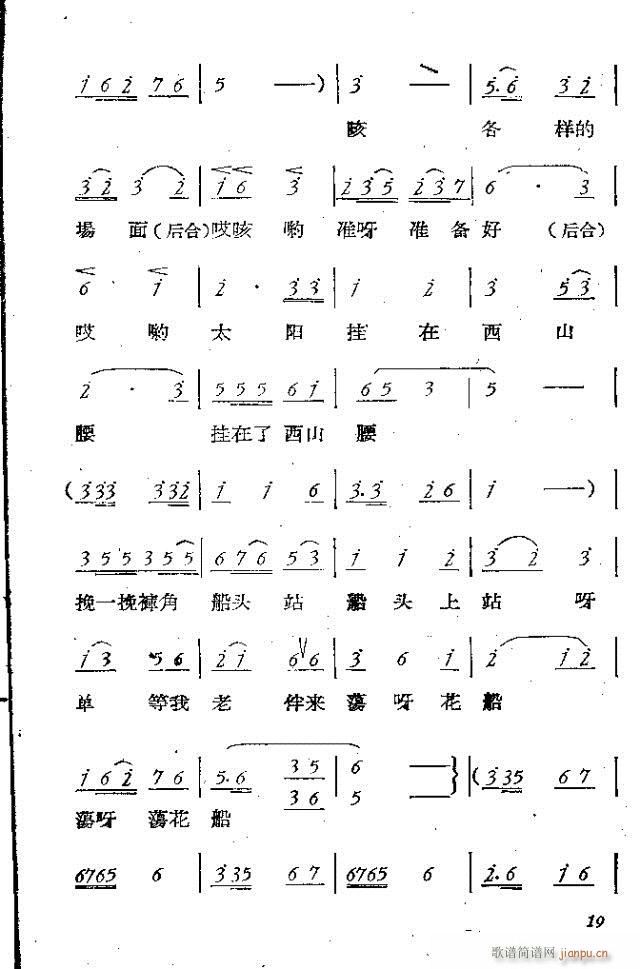 i 6 2 7 6 | 5 —) | 3 \ | 5. 6 3 2 |
咳 各 样的
3 2 3 2 | i 6 3 | 2 3 5 2 3 7 | 6 · 3 |
場 面(后合)哎咳 喲 准呀 准 备 好 (后合)
6 i | 2 · 3 3 | i 2 | 3 5 3 |
哎 喲 太 阳 挂 在 西 山
2 · 3 | 5 5 5 6 i | 6 5 3 | 5 — |
腰 挂在了 西山 腰
(3 3 3 3 3 2 | i i 6 | 3. 3 2 6 | i —)
3 5 5 3 5 5 | 6 7 6 5 3 | i i 2 | 3 2 3 |
挽一挽裤角 船头 站 船 头 上 站 呀
i 3 5 6 | 2 i 6 6 | 3 6 i | 2 i 2 |
单 等我 老 伴来 蕩 呀 花 船
i 6 2 7 6 | 5. 6 3 5 | 6 — } (3 3 5 6 7 |
3 6 | 5 —
蕩呀 蕩花 船
6765 6 | 3 3 5 6 7 | 6765 6 | 2. 6 i 6 |
19
歌谱简谱网 jianpu.cn